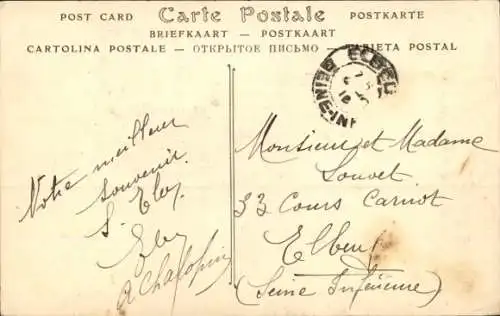 POST CARD Carte Postale POSTKARTE
BRIEFKAART — POSTKAART
CARTOLINA POSTALE — ОТКРЫТОЕ ПИСЬМО — TARJETA POSTAL
ELBEUF
SEINE-INF
Votre meilleur
souvenir.
Monsieur et Madame
Louvet
33 Cours Carnot
Elbeuf
(Seine Inférieure)